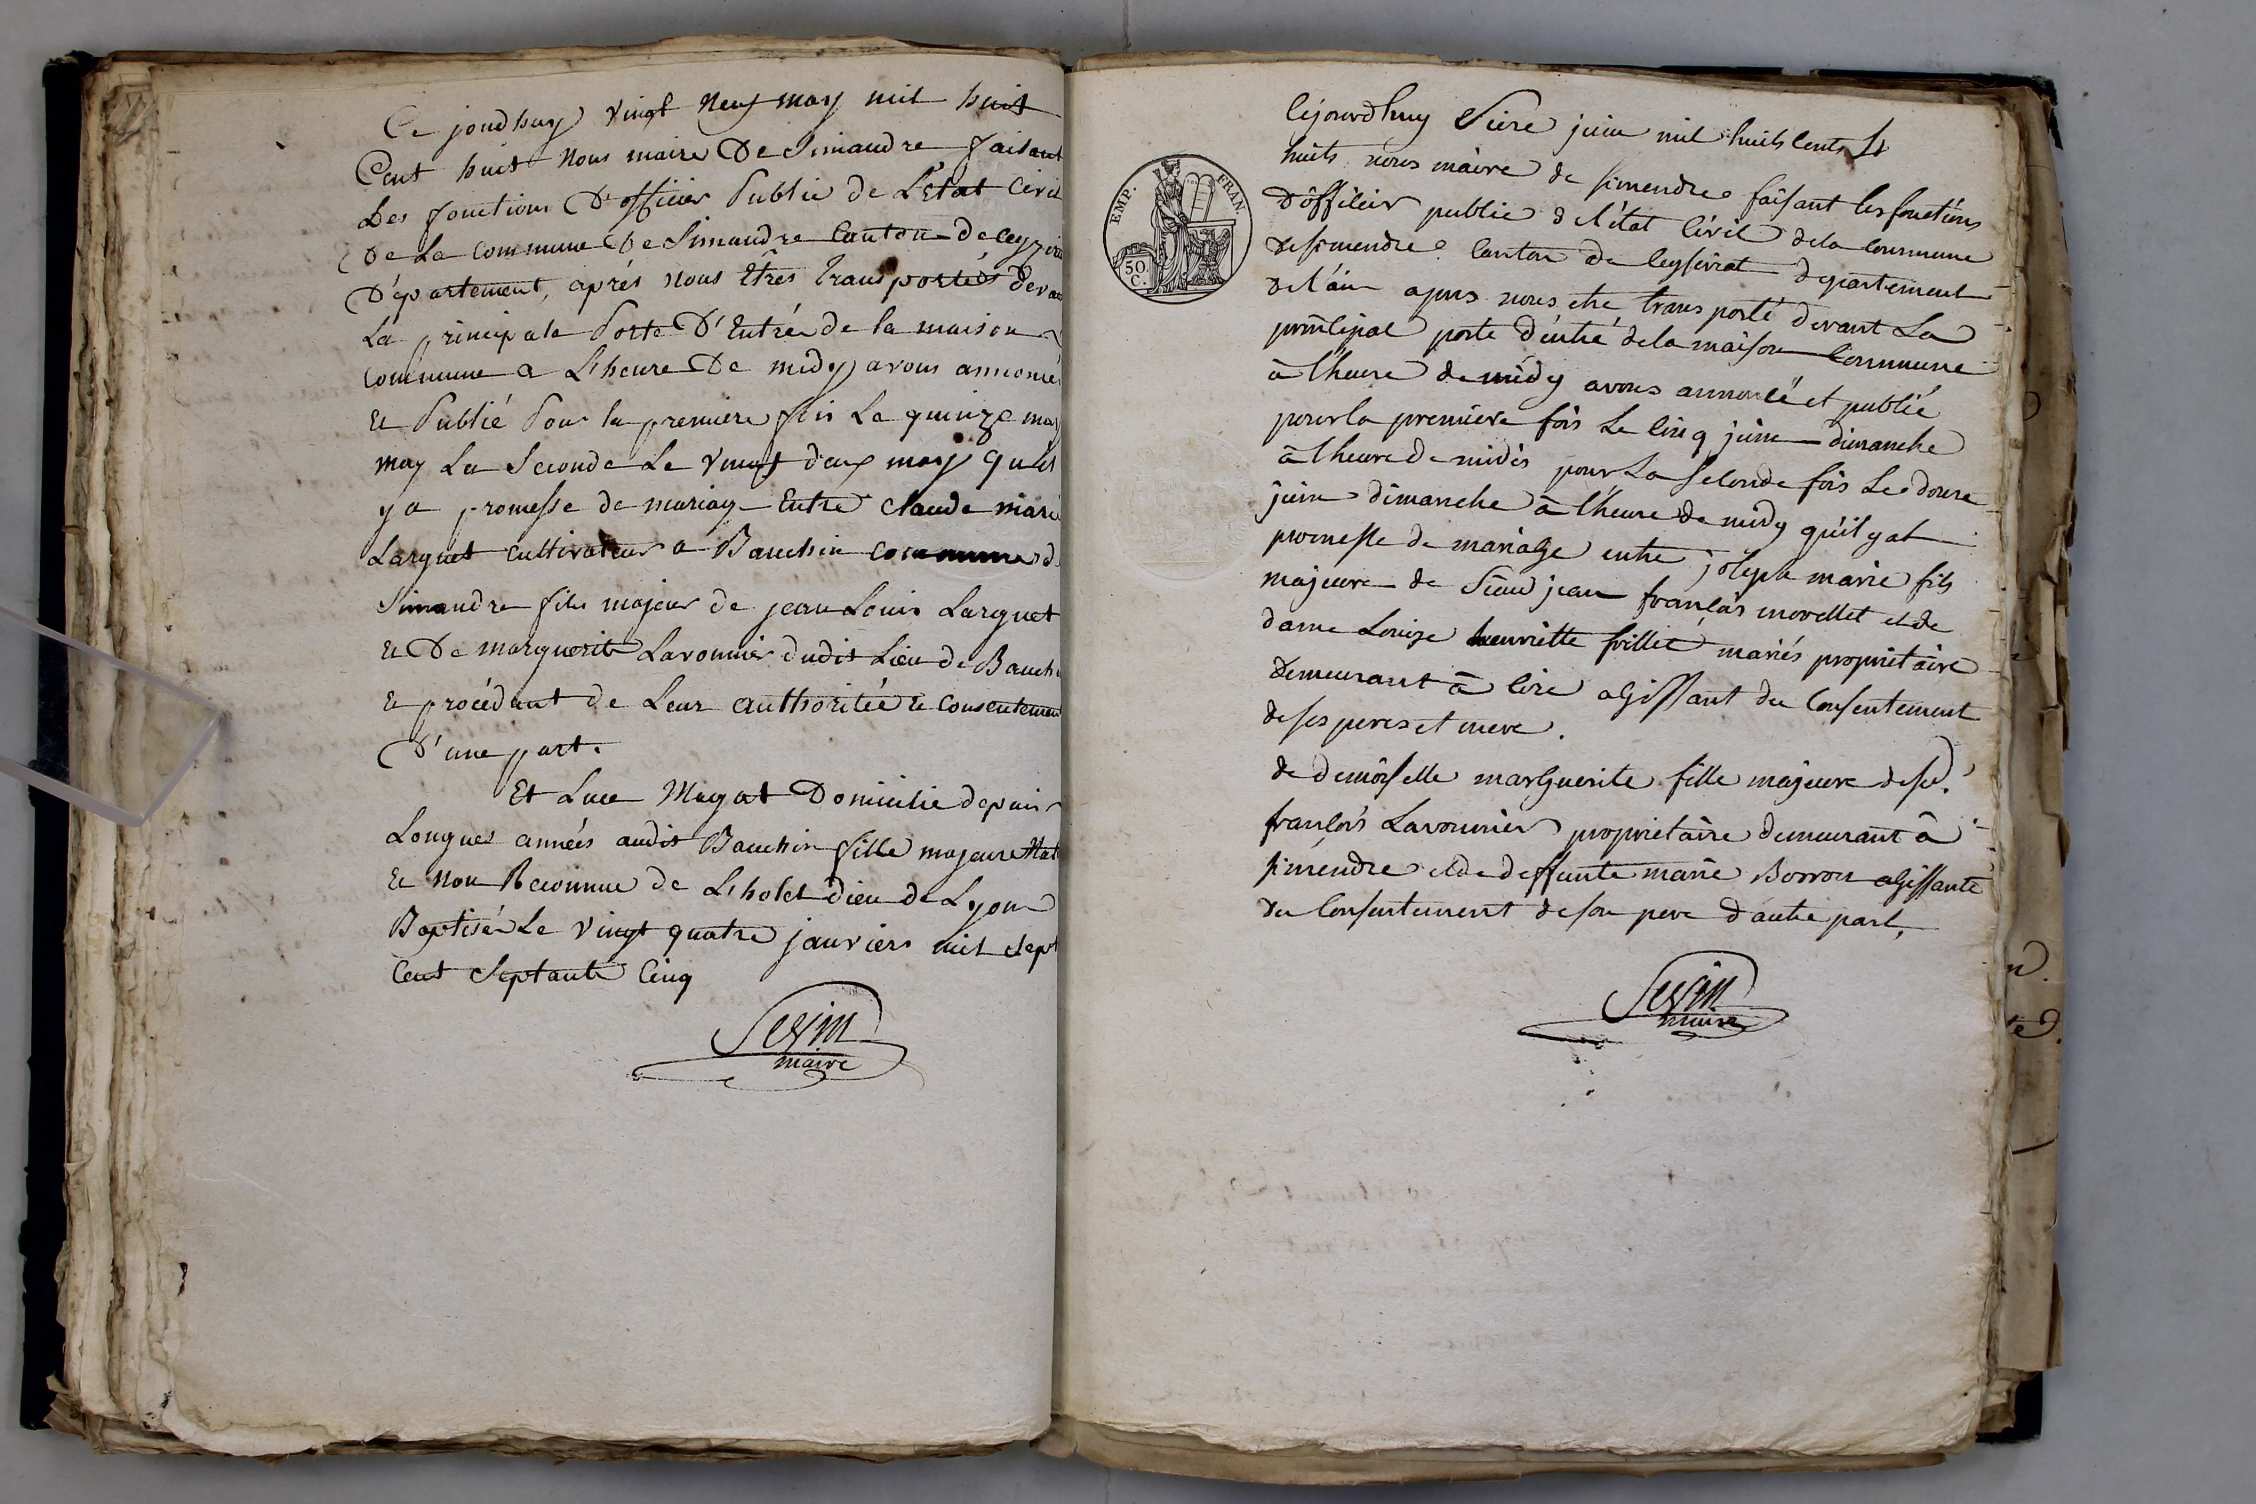 Ce jourdhuy vingt neuf may mil huit
Cent huit nous maire De Simandre faisant
Les fonctions D'officier Public de L'Etat Civil
De La Commune De Simandre Canton de ceyzeria
Département, aprés nous Etres transportés devant
La principale Porte D'Entrée de la maison
Commune a L'heure De midy avons annoncé
Et Publié Pour la premiere fois Le quinze may
may La Seconde Le vingt deux may qu'il
y a promesse de mariage Entre Claude marie
Larguet cultivateur a Bauchin commune d
Simandre fils majeur de jean Louis Larguet
Et De marguerite Lavonnier dudit Lieu de Bauchin
Et procédant de Leur authoritée Et Consentement
D'une part.
Et Luce Magat Domicilie depuis
Longues années audit Bauchin fille majeure Nat
Et non Reconnue de L'hotel dieu de Lyon
Baptisée Le vingt quatre janviers mil sept
Cent Septante Cinq
Sevin
maire
EMP. FRAN.
50.
C.
Cejourdhuy Sieze juin mil huits cents et
huits nous maire de simendre faisant les fonctions
D'offiliér public de l'état Civil de la Commune
de simendre Canton de Ceyserirat departement
de l'ain apres nous etre transporté devant La
principal porte d'entré de la maison Commune
à l'heure de midy avons annoncé et publié
pour la premiere fois Le cinq juin dimanche
à l'heure de midis pour La seconde fois Le douze
juin dimanche à l'heure de midy qu'il y at
promesse de mariage entre joseph marie fils
majeure de Sieud jean francois morellet et de
dame Louize henriette frillet mariés proprietaire
demeurant à Cize agissant du Consentement
de ses peres et mere.
de demoiselle marguerite fille majeure de sr.
francois Lavonnier proprietaire demeurant à
simendre et de deffunte marie Borron agissante
du Consentement de son pere d'autre part,
Sevin
maire